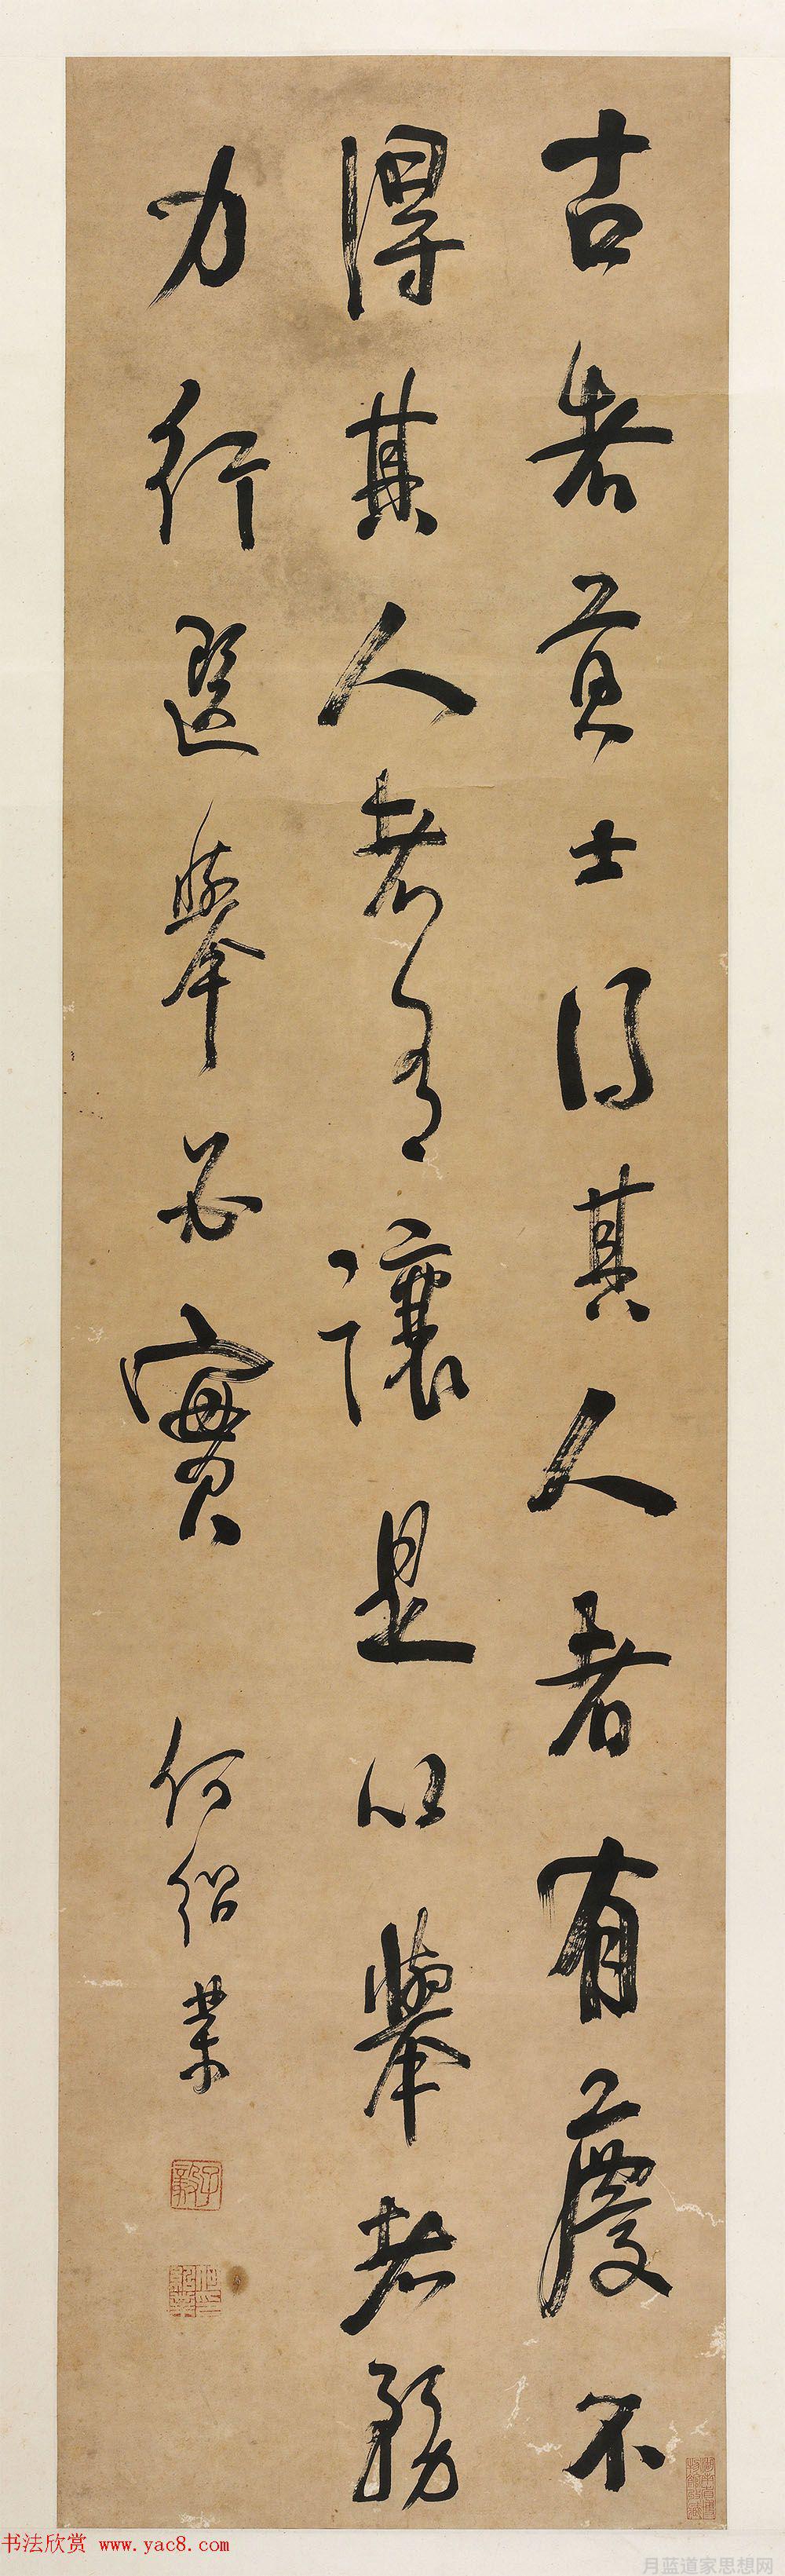 古者贡士得其人者有庆不
得其人者有讓是以舉者務
力行選舉必實
何绍業
子毅
书法欣赏 www.yac8.com
月蓝道家思想网